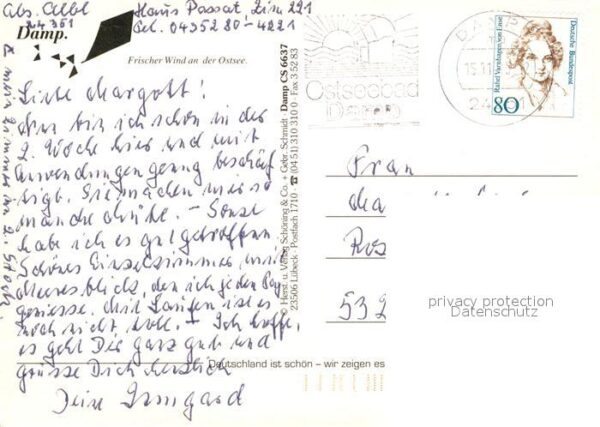 Abs. Albl
24351
Haus Passat, Zim 221
Tel. 04352 80-4221
Damp.
Frischer Wind an der Ostsee.
Liebe Margott!
Nun bin ich schon in der
2. Woche hier und mit
Anwendungen genug beschäf
tigt. Sie machen mir so
manche Mühe. – Sonst
habe ich es gut getroffen.
Schönes Einzelzimmer, mit
Meeresblick, den ich jeden Tag
geniesse. Mit Laufen ist es
noch nicht toll. – Ich hoffe,
es geht Dir ganz gut und
grüsse Dich herzlich
Deine Irmgard
© Herst. u. Verlag Schöning & Co. + Gebr. Schmidt · Damp CS 6637
23506 Lübeck · Postfach 1710 · ☎ (04 51) 310 310 · Fax 3 52 83
Deutschland ist schön – wir zeigen es
Ostseebad
Damp
DAMP
Rahel Varnhagen von Ense
Deutsche Bundespost
80
Frau
Ma
Ros
532
privacy protection
Datenschutz